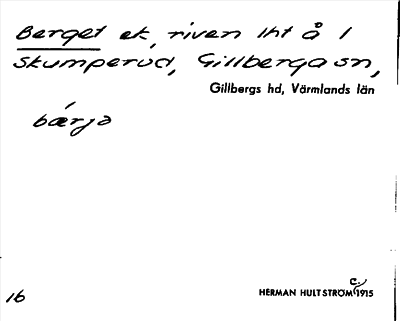 Berget ek, riven lht å 1
Skumperud, Gillberga sn,
Gillbergs hd, Värmlands län
bærjə
HERMAN HULTSTRÖM c. 1915
16